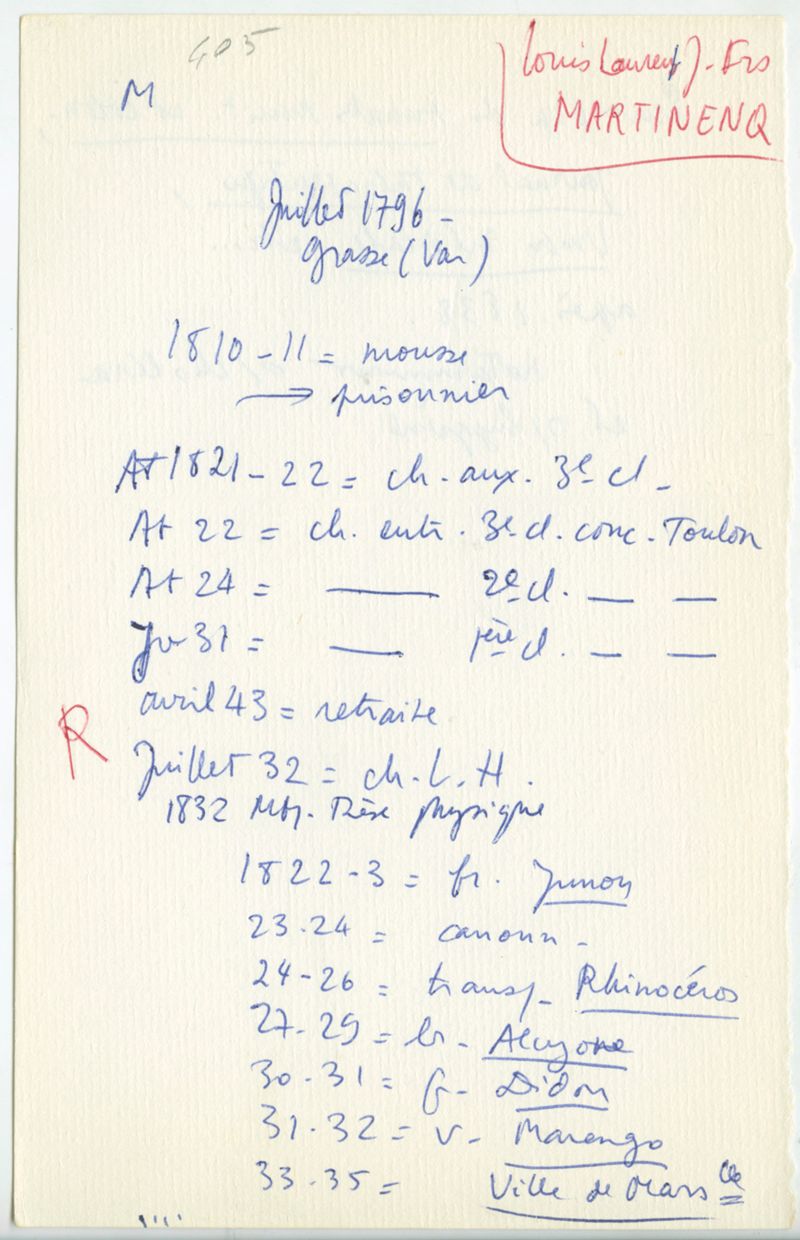 405
M
Louis Laurent J. Frs
MARTINENQ
Juillet 1796 -
Grasse (Var)
1810-11 = mousse
→ prisonnier
At 1821-22 = ch. aux. 3e cl -
At 22 = ch. entr. 3e cl. conc. Toulon
At 24 = —— 2e cl. — —
Jr 31 = —— 1ère cl. — —
avril 43 = retraite
R
Juillet 32 = ch. L. H.
1832 Mtp. Thèse physique
1822-3 = fr. Junon
23.24 = canonn -
24-26 = transp - Rhinocéros
27-29 = br - Alcyone
30-31 = f - Didon
31-32 = v - Marengo
33-35 = Ville de Marslle